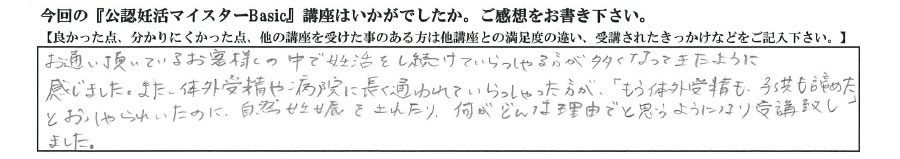 今回の『公認妊活マイスターBasic』講座はいかがでしたか。ご感想をお書き下さい。
【良かった点、分かりにくかった点、他の講座を受けた事のある方は他講座との満足度の違い、受講されたきっかけなどをご記入下さい。】
お通い頂いているお客様の中で妊活をし続けていらっしゃる方が多くなってきたように
感じました。また、体外受精や病院に長く通われていらっしゃった方が、「もう体外受精も、子供も諦めた」
とおっしゃられいたのに、自然妊娠をされたり、何がどんな理由でと思うようになり受講致し
ました。